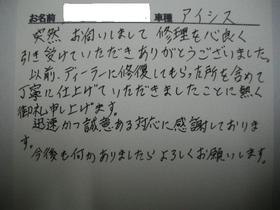 お名前 車種 アイシス
突然 お伺いしまして 修理を心良く
引き受けていただきありがとうございました。
以前、ディーラーに修復してもらった所を含めて
丁寧に仕上げていただきましたことに無く
御礼申し上げます。
迅速かつ誠意ある対応に感謝しておりま
す。
今後も何かありましたらよろしくお願いします。